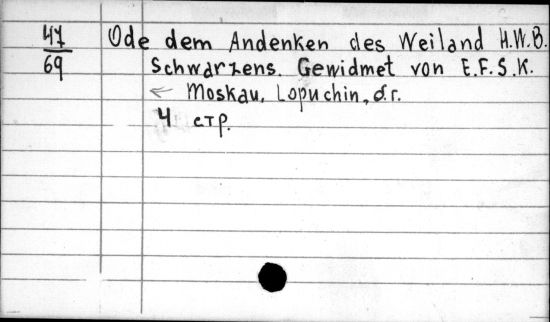 47 Ode dem Andenken des Weiland H.W.B.
69 Schwarzens. Gewidmet von E.F.S.K.
← Moskau, Lopuchin, d.r.
4 стр.